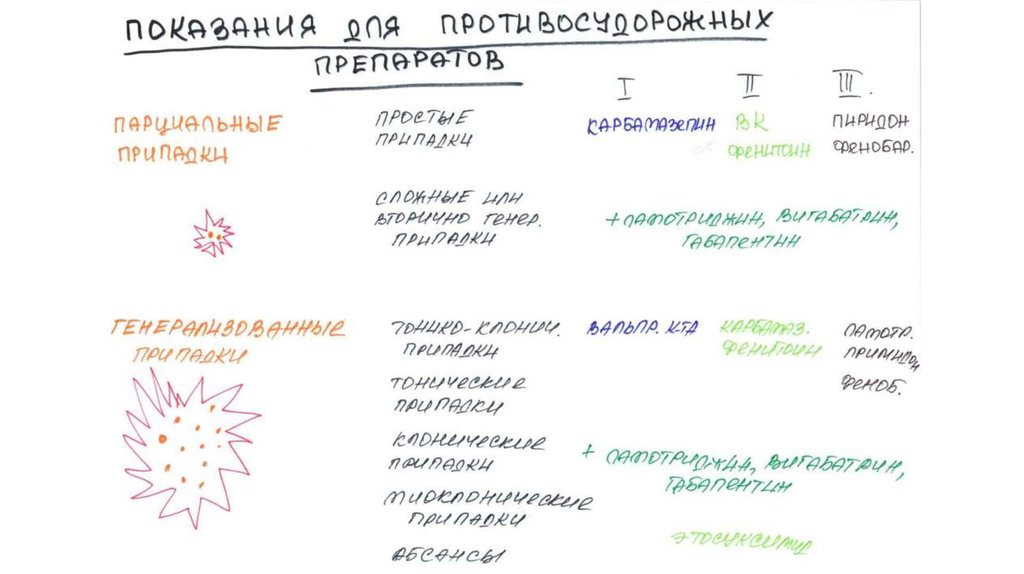 ПОКАЗАНИЯ ДЛЯ ПРОТИВОСУДОРОЖНЫХ
ПРЕПАРАТОВ
I II III.
ПАРЦИАЛЬНЫЕ
ПРИПАДКИ
ПРОСТЫЕ
ПРИПАДКИ
КАРБАМАЗЕПИН
ВК
ФЕНИТОИН
ПИРИДОН
ФЕНОБАР.
СЛОЖНЫЕ ИЛИ
ВТОРИЧНО ГЕНЕР.
ПРИПАДКИ
+ ЛАМОТРИДЖИН, ВИГАБАТРИН,
ГАБАПЕНТИН
ГЕНЕРАЛИЗОВАННЫЕ
ПРИПАДКИ
ТОНИКО-КЛОНИЧ.
ПРИПАДКИ
ВАЛЬПР. К-ТА
КАРБАМАЗ.
ФЕНИТОИН
ЛАМОТР.
ПРИМИДОН
ФЕНОБ.
ТОНИЧЕСКИЕ
ПРИПАДКИ
КЛОНИЧЕСКИЕ
ПРИПАДКИ
+ ЛАМОТРИДЖИН, ВИГАБАТРИН,
ГАБАПЕНТИН
МИОКЛОНИЧЕСКИЕ
ПРИПАДКИ
АБСАНСЫ
ЭТОСУКСИМИД